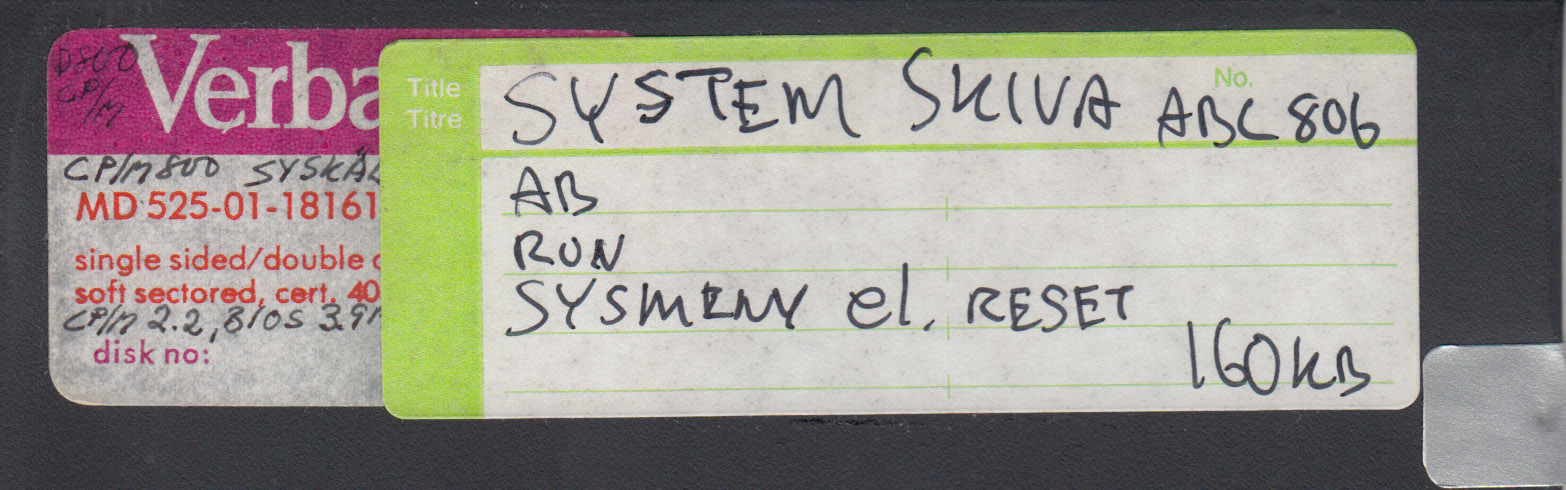 D800
CP/M
Verba
CP/M 800 SYSKÄL
MD 525-01-18161
single sided/double
soft sectored, cert. 40
CP/M 2.2, BIOS 3.9
disk no:
Title
Titre
No.
SYSTEM SKIVA ABC 806
AB
RUN
SYSMENY el. RESET
160KB